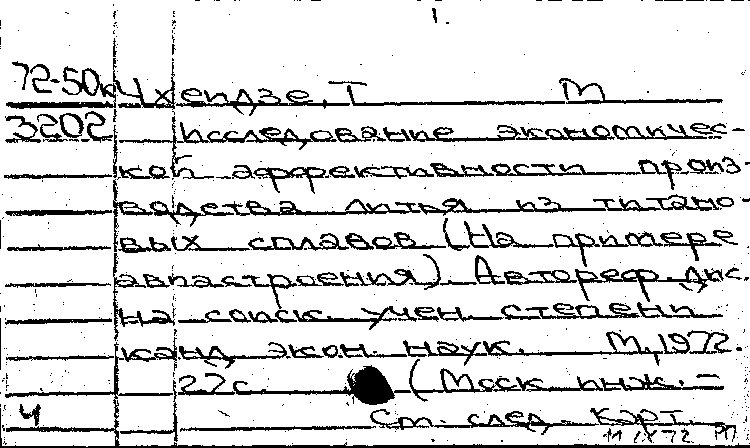 1.
72-50к Чхеидзе, Т М
3202 Исследование экономичес-
кой эффективности произ-
водства литья из титано-
вых сплавов (На примере
авиастроения). Автореф. дис.
на соиск. учен. степени
канд. экон. наук. М., 1972.
22с. (Моск инж.-
Ч См. след. карт.
11 IX 72 РП